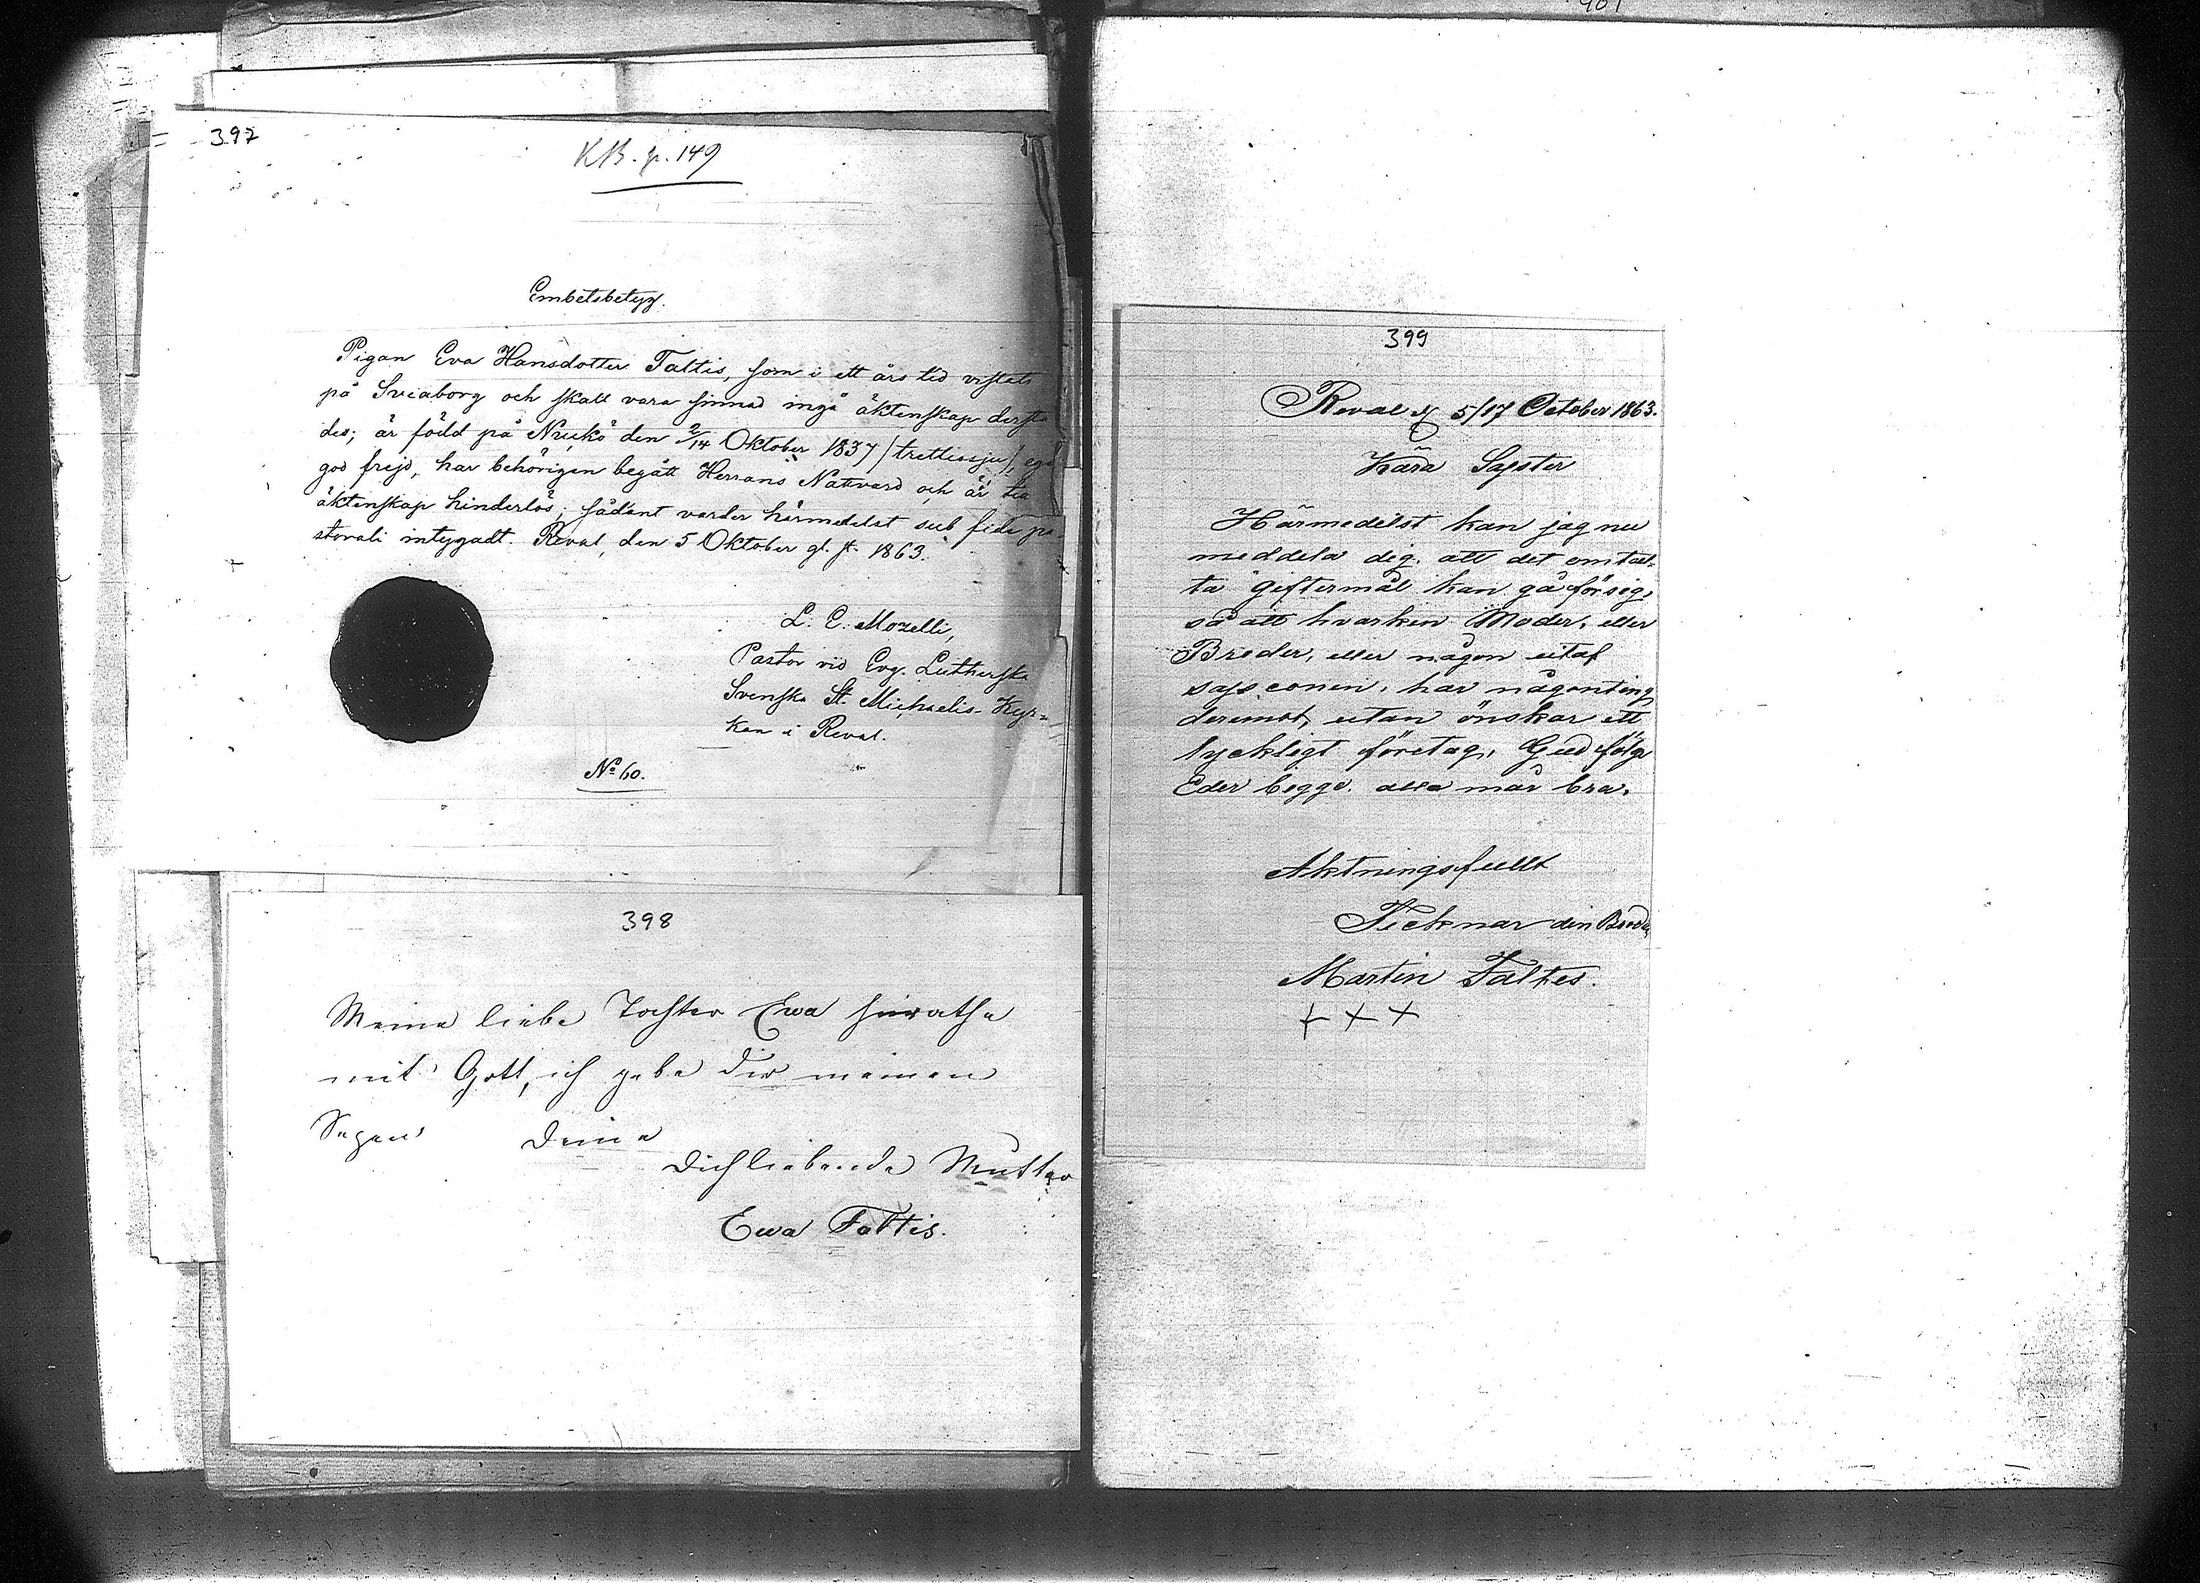 397
KB. p. 149
Embetsbetyg.
Pigan Eva Hansdotter Taltis, som i ett års tid vistats
på Sveaborg och skall vara sinnad ingå äktenskap dersta
des; är född på Nuckö den 2/14 Oktober 1837 (trettiosju), eger
god frejd, har behörigen begått Herrans Nattvard och är till
äktenskap hinderlös; sådant varder härmedelst sub fide pa
storali intygadt. Reval, den 5 Oktober gl. st. 1863.
L. E. Mozelli,
Pastor vid Evg. Lutherska
Svenska St. Michaelis-Kyr=
kan i Reval.
No 60.
398
Meine liebe Tochter Ewa heirathe
mit Gott, ich gebe Dir meinen
Segen Deine
Dich liebende Mutter
Ewa Taltis.
401
399
Reval d 5/17 October 1863.
Kära Syster
Härmedelst kan jag nu
meddela dig. att det omtal-
ta giftermål kan gå för sig,
så att hvarken Moder, eller
Bröder, eller någon utaf
har någonting
deremot, utan önskar ett
lyckligt företag, Gud följe
Eder begge. alla mår bra.
Aktningsfullt
Tecknar din Broder
Martin Taltes.
+ + +